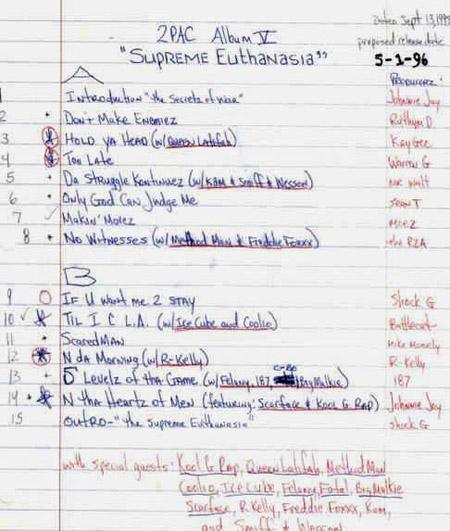 Dated Sept 13, 199
2PAC Album V
proposed release date
"Supreme Euthanasia"
5-1-96
A
Producerz:
1 Introduction "the Secretz of War" Johnny Jay
2 Don't Make Enemiez Ruthym D
3 Hold ya Head (w/ Queen Latifah) Kay Gee
4 Too Late Warren G
5 Da Struggle Kontinuez (w/ Kam & Smiff & Wesson)
6 Only God Can Judge Me Sean T
7 Makin' Movez Moez
8 No Witnesses (w/ Method Man & Freddie Foxxx) RZA
B
9 If U want me 2 stay Shock G
10 Til I C L.A. (w/ Ice Cube and Coolio) Battlecat
11 Scared Man Mike Mosely
12 N da Morning (w/ R-Kelly) R-Kelly
C-Bo
13 5 Levelz of tha Game (w/ Felony, 187, Big Malkie) 187
14 N tha Heartz of Men (featuring: Scarface & Kool G Rap) Johnny Jay
15 Outro-"the Supreme Euthanasia" Shock G
with special guests: Kool G Rap, Queen Latifah, Method Man
Coolio, Ice Cube, Felony, Fatal, Big Malkie
Scarface, R Kelly, Freddie Foxxx, Kam,
and Smiff & Wesson